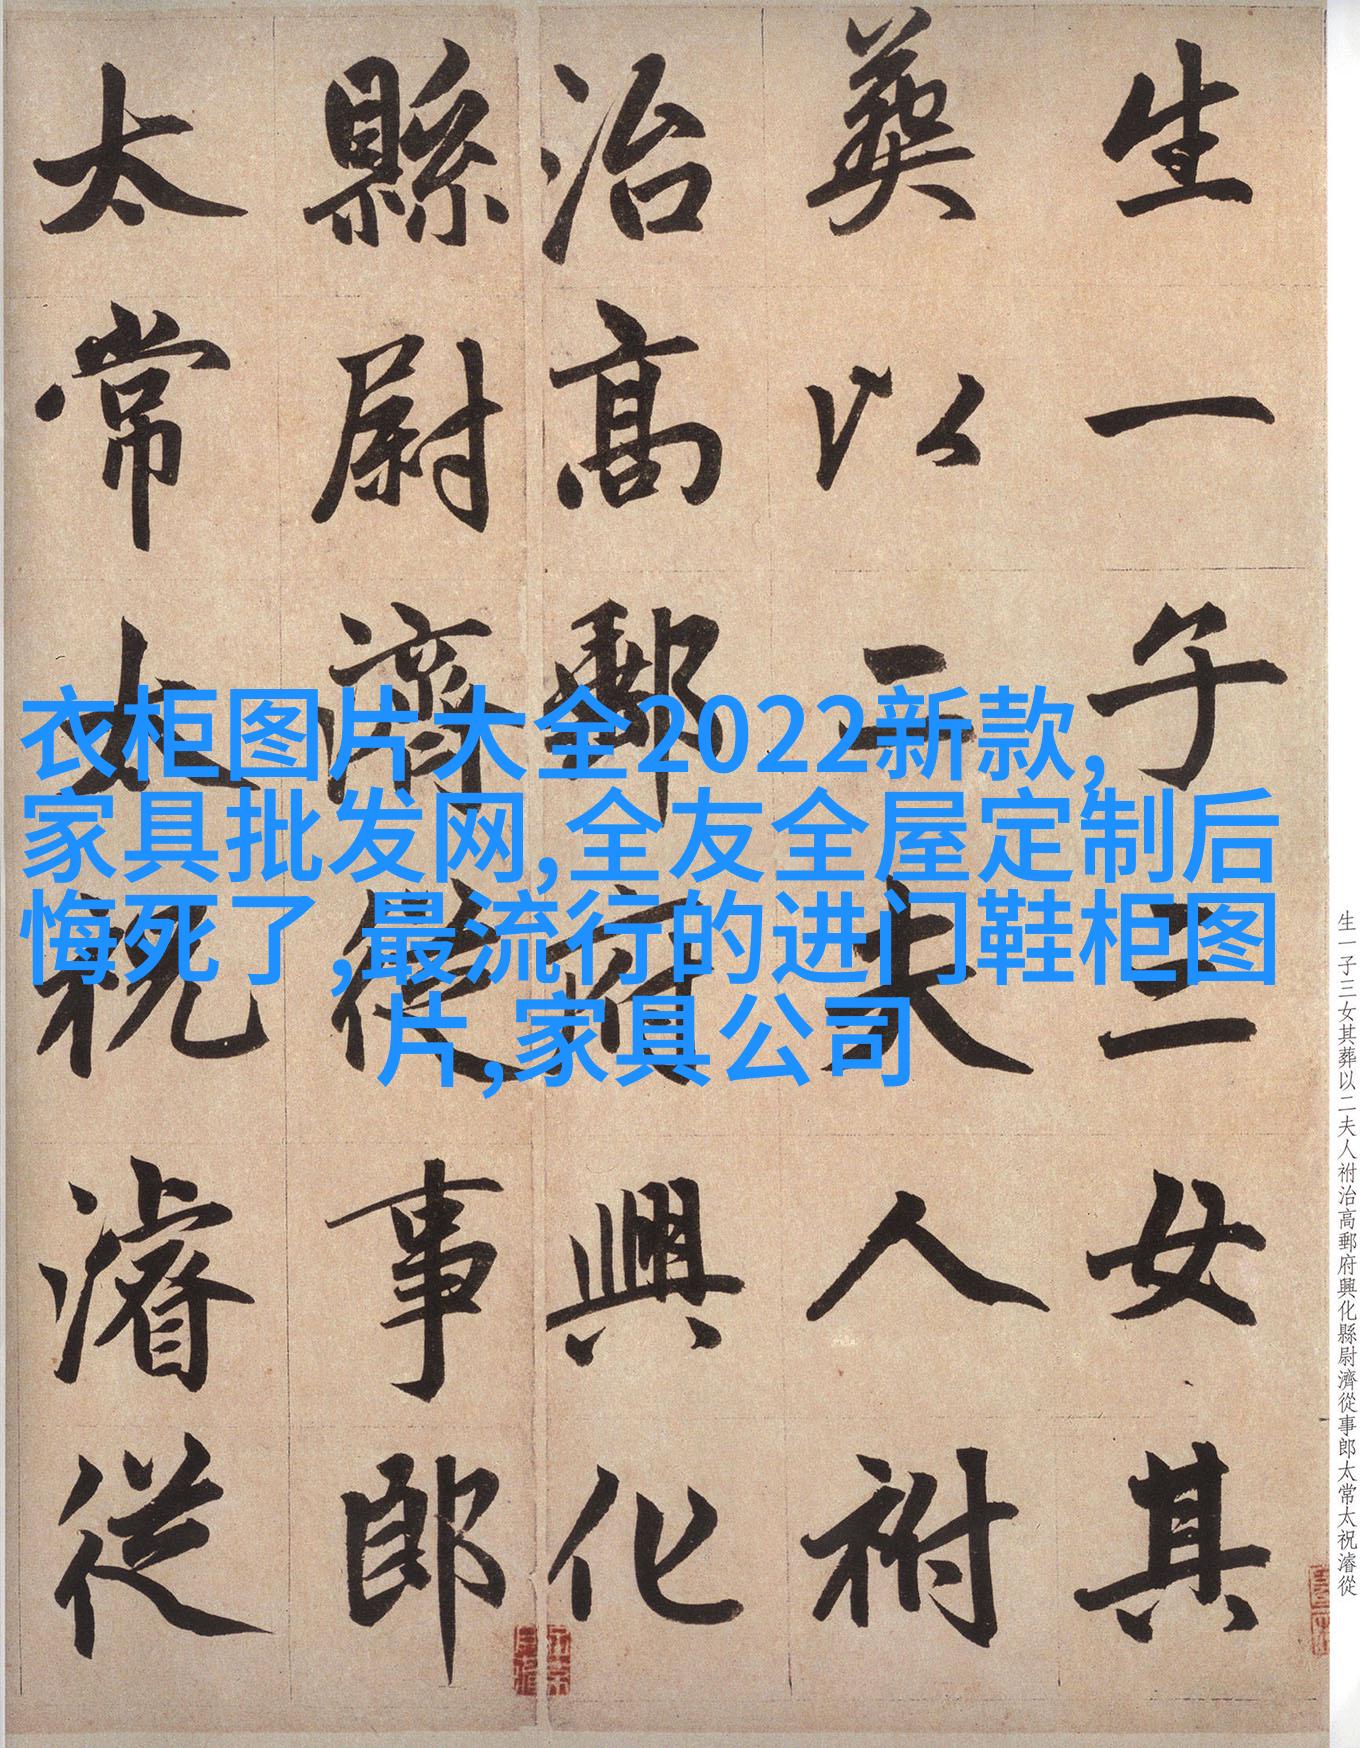 生一子三女其
葬以二夫人祔
治高郵府興化
縣尉濟從事郎
太常太祝濬從
衣柜图片大全2022新款,
家具批发网,全友全屋定制后
悔死了,最流行的进门鞋柜图
片,家具公司
生一子三女其葬以二夫人祔治高郵府興化縣尉濟從事郎太常太祝濬從